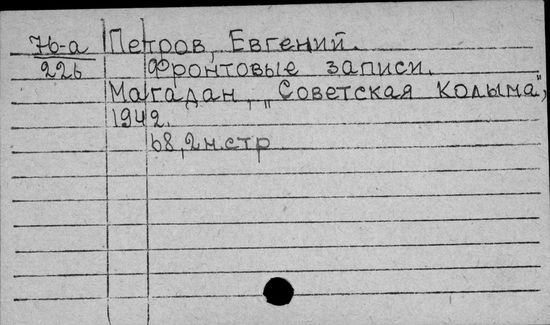 76-а Петров, Евгений.
226 Фронтовые записи.
Магадан, „Советская Колыма",
1942.
68,2н.стр